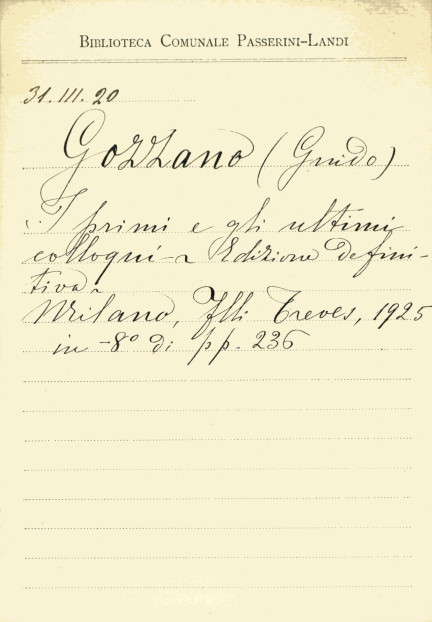 BIBLIOTECA COMUNALE PASSERINI-LANDI
31.III.20
Gozzano (Guido)
I primi e gli ultimi
colloqui - Edizione defini-
tiva -
Milano, Flli Treves, 1925
in -8° di pp. 236